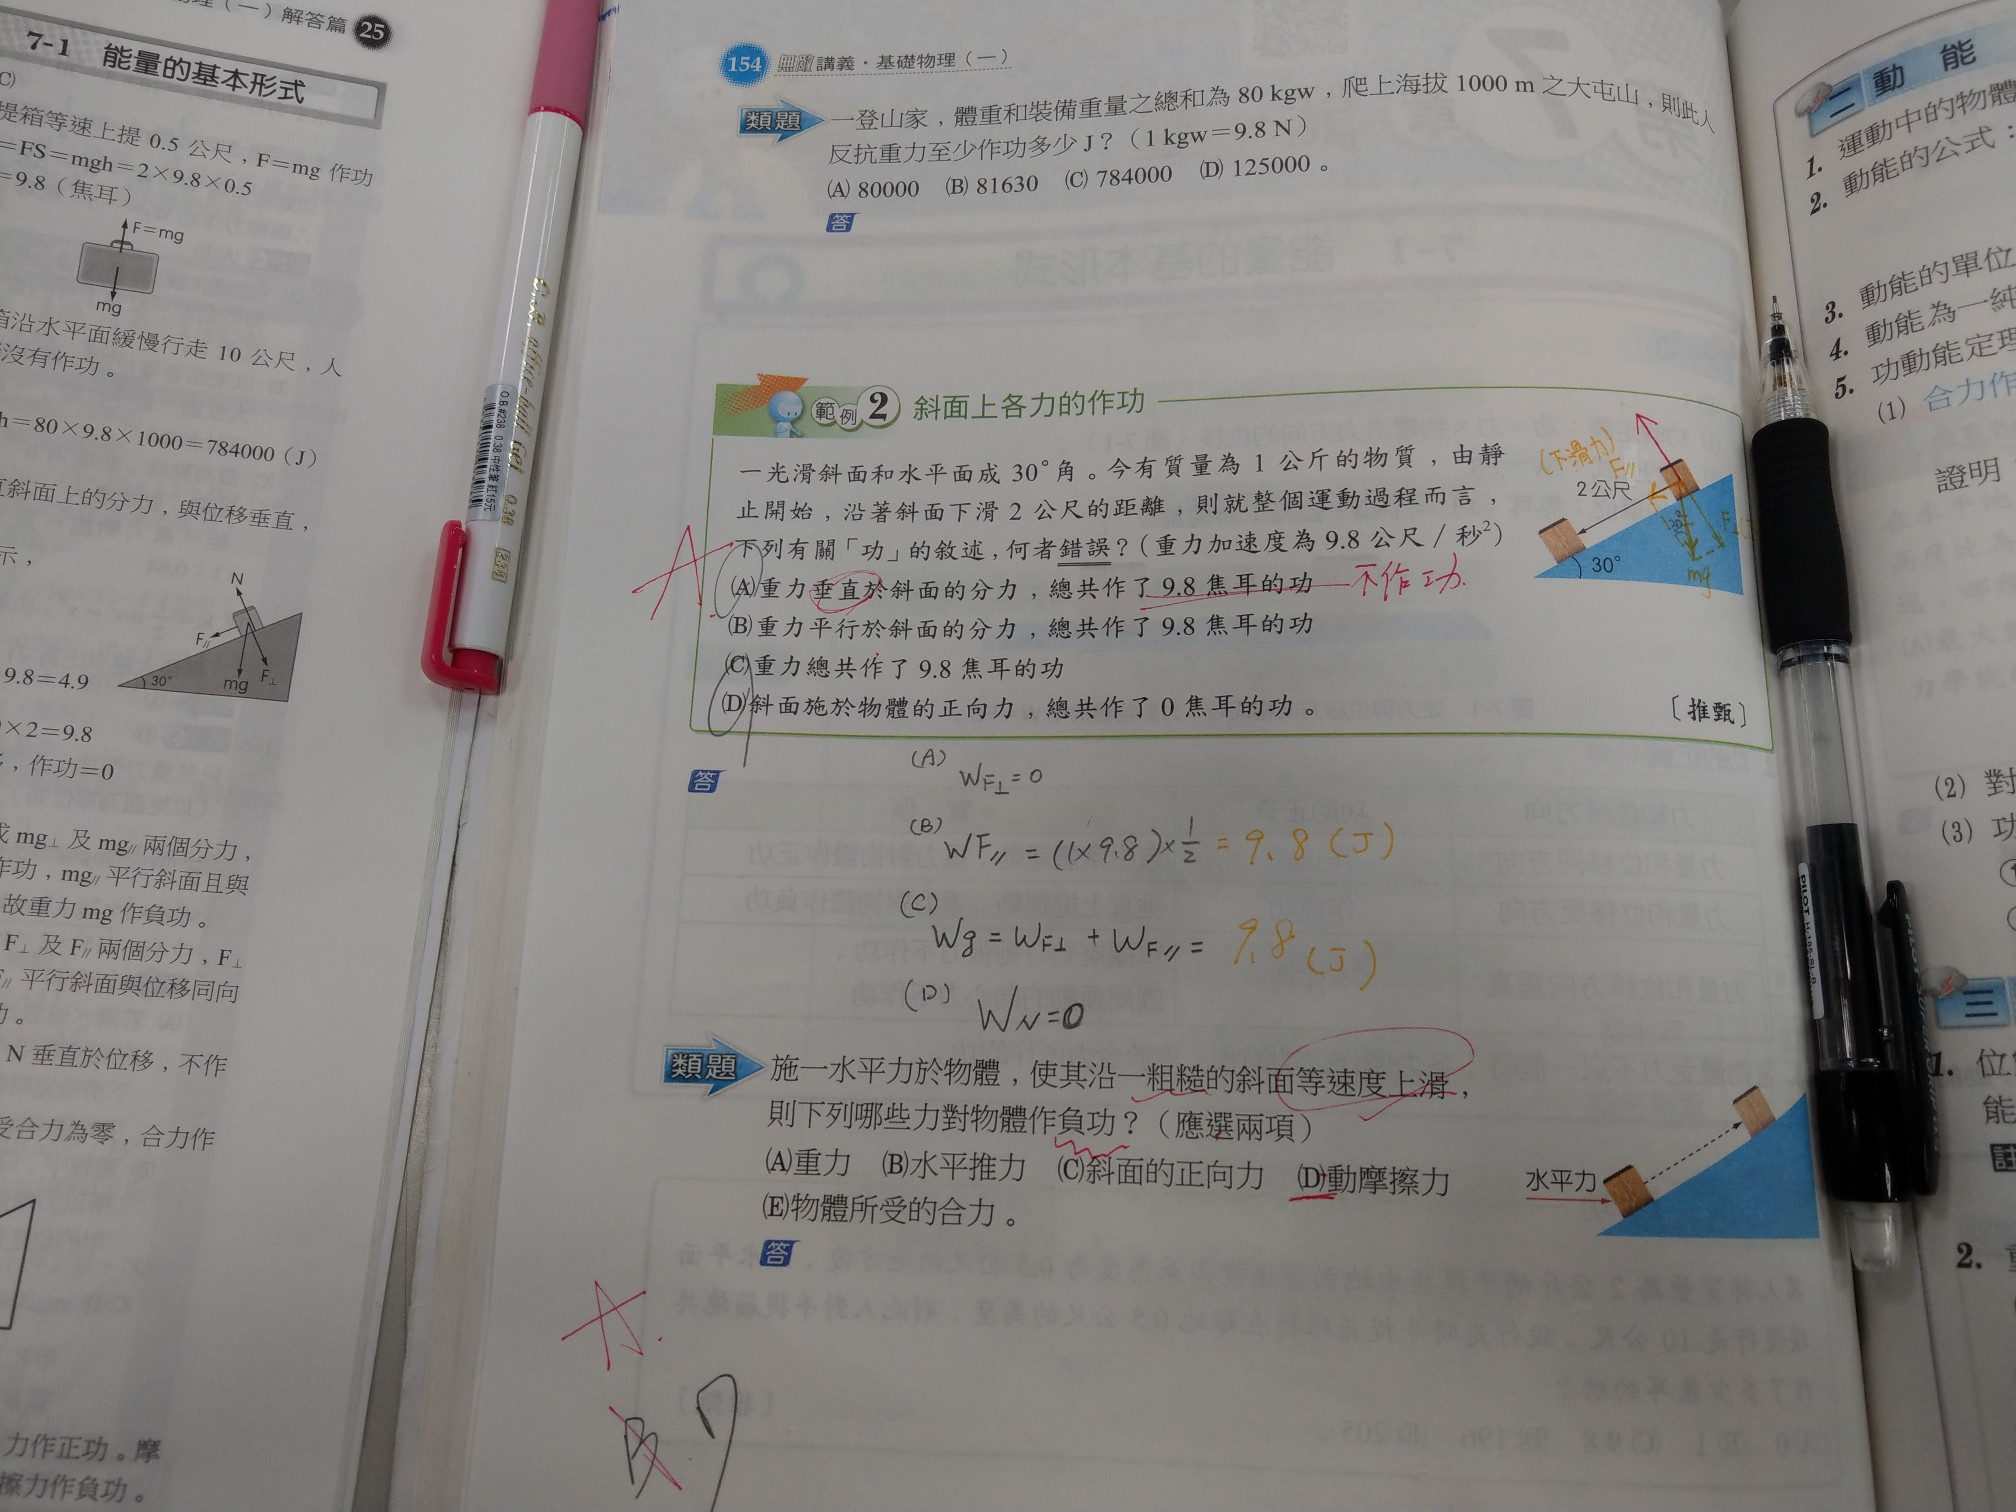 理(一)解答篇 25
7-1 能量的基本形式
C)
提箱等速上提 0.5 公尺,F=mg 作功
=FS=mgh=2×9.8×0.5
=9.8(焦耳)
F=mg
mg
箱沿水平面緩慢行走 10 公尺,人
沒有作功。
h=80×9.8×1000=784000(J)
直斜面上的分力,與位移垂直,
示,
N
F//
30°
mg
F⊥
9.8=4.9
×2=9.8
,作功=0
成 mg⊥ 及 mg// 兩個分力,
作功,mg// 平行斜面且與
故重力 mg 作負功。
F⊥ 及 F// 兩個分力,F⊥
F// 平行斜面與位移同向
力。
N 垂直於位移,不作
受合力為零,合力作
力作正功。摩
擦力作負功。
O.B.#238 0.38 中性筆 紅15元
154 無敵講義・基礎物理(一)
類題 一登山家,體重和裝備重量之總和為 80 kgw,爬上海拔 1000 m 之大屯山,則此人
反抗重力至少作功多少 J?(1 kgw=9.8 N)
(A) 80000 (B) 81630 (C) 784000 (D) 125000。
答
範例 2 斜面上各力的作功
一光滑斜面和水平面成 30°角。今有質量為 1 公斤的物質,由靜
止開始,沿著斜面下滑 2 公尺的距離,則就整個運動過程而言,
下列有關「功」的敘述,何者錯誤?(重力加速度為 9.8 公尺/秒²)
A. (A)重力垂直於斜面的分力,總共作了 9.8 焦耳的功 不作功.
(B)重力平行於斜面的分力,總共作了 9.8 焦耳的功
(C)重力總共作了 9.8 焦耳的功
(D)斜面施於物體的正向力,總共作了 0 焦耳的功。
〔推甄〕
(下滑力)
F//
2公尺
30°
mg
答
(A)
WF⊥=0
(B)
WF// = (1×9.8)×1/2 = 9.8 (J)
(C)
Wg = WF⊥ + WF// = 9.8 (J)
(D)
WN=0
類題 施一水平力於物體,使其沿一粗糙的斜面等速度上滑,
則下列哪些力對物體作負功?(應選兩項)
(A)重力 (B)水平推力 (C)斜面的正向力 (D)動摩擦力
(E)物體所受的合力。
水平力
答
A.
B
二 動 能
1. 運動中的物體
2. 動能的公式:
3. 動能的單位
4. 動能為一純
5. 功動能定理
(1) 合力作
證明
(2) 對
(3) 功
三
1. 位
能
註
2.
PILOT